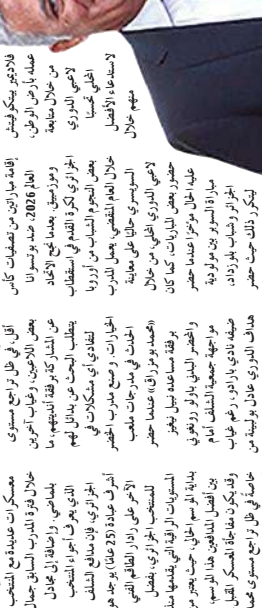 فلاديمير بيتكوفيتش
عمله بأرض الوطن،
من خلال متابعة
لاعبي الدوري
المحلي تحسبا
لاستدعاء الأفضل
منهم خلال
إقامة مباراتين من تصفيات كأس
العالم 2026، ضد بوتسوانا
وموزمبيق. بعدما نجح الاتحاد
الجزائري لكرة القدم في استقطاب
بعض النجوم الشباب من أوروبا
خلال العام المنقضي، يعمل المدرب
السويسري حاليا على معاينة
لاعبي الدوري المحلي من خلال
حضور بعض المباريات، كما كان
عليه الحال مؤخرا عندما حضر
مباراة السوبر بين مولودية
الجزائر وشباب بلوزداد،
ليتكرر ذلك حيث حضر
أقل، في ظل تراجع مستوى
بعض اللاعبين، وغياب آخرين
عن المشاركة برفقة أنديتهم، ما
يتطلب البحث عن بدائل لهم
لتفادي أي مشكلات في
الخيارات. وصنع مدرب الخضر
الحدث في مدرجات ملعب
«محمد بومزراق» عندما حضر
برفقة مساعده نبيل نغيز
والمحضر البدني باولو رونغوني
مواجهة جمعية الشلف أمام
ضيفه نادي بارادو، رغم غياب
هداف الدوري عادل بولبينة من
معسكرات عديدة مع المنتخب
خلال فترة المدرب السابق جمال
بلماضي. وإضافة إلى مجادل
الذي يعرف أجواء المنتخب
الجزائري، فإن مدافع الشلف
أشرف عبادة (25 عاما) يوجد هو
الآخر على رادار الطاقم الفني
للمنتخب الجزائري، بفضل
المستويات الراقية التي يقدمها منذ
بداية الموسم الحالي، حيث يعتبر من
بين أفضل المدافعين هذا الموسم،
وقد يكون مفاجأة المعسكر المقبل
خاصة في ظل تراجع مستوى محمد